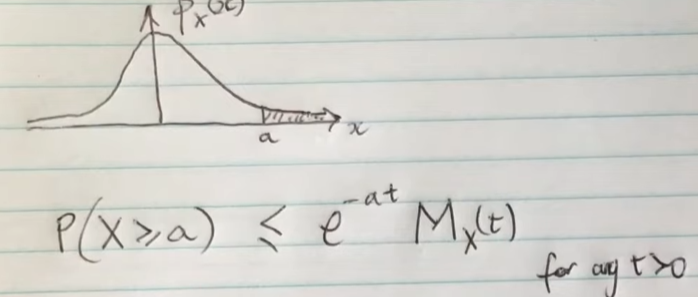 Pₓ(x)
a
x
P(X ≥ a) ≤ e^{-at} Mₓ(t)
for any t>0